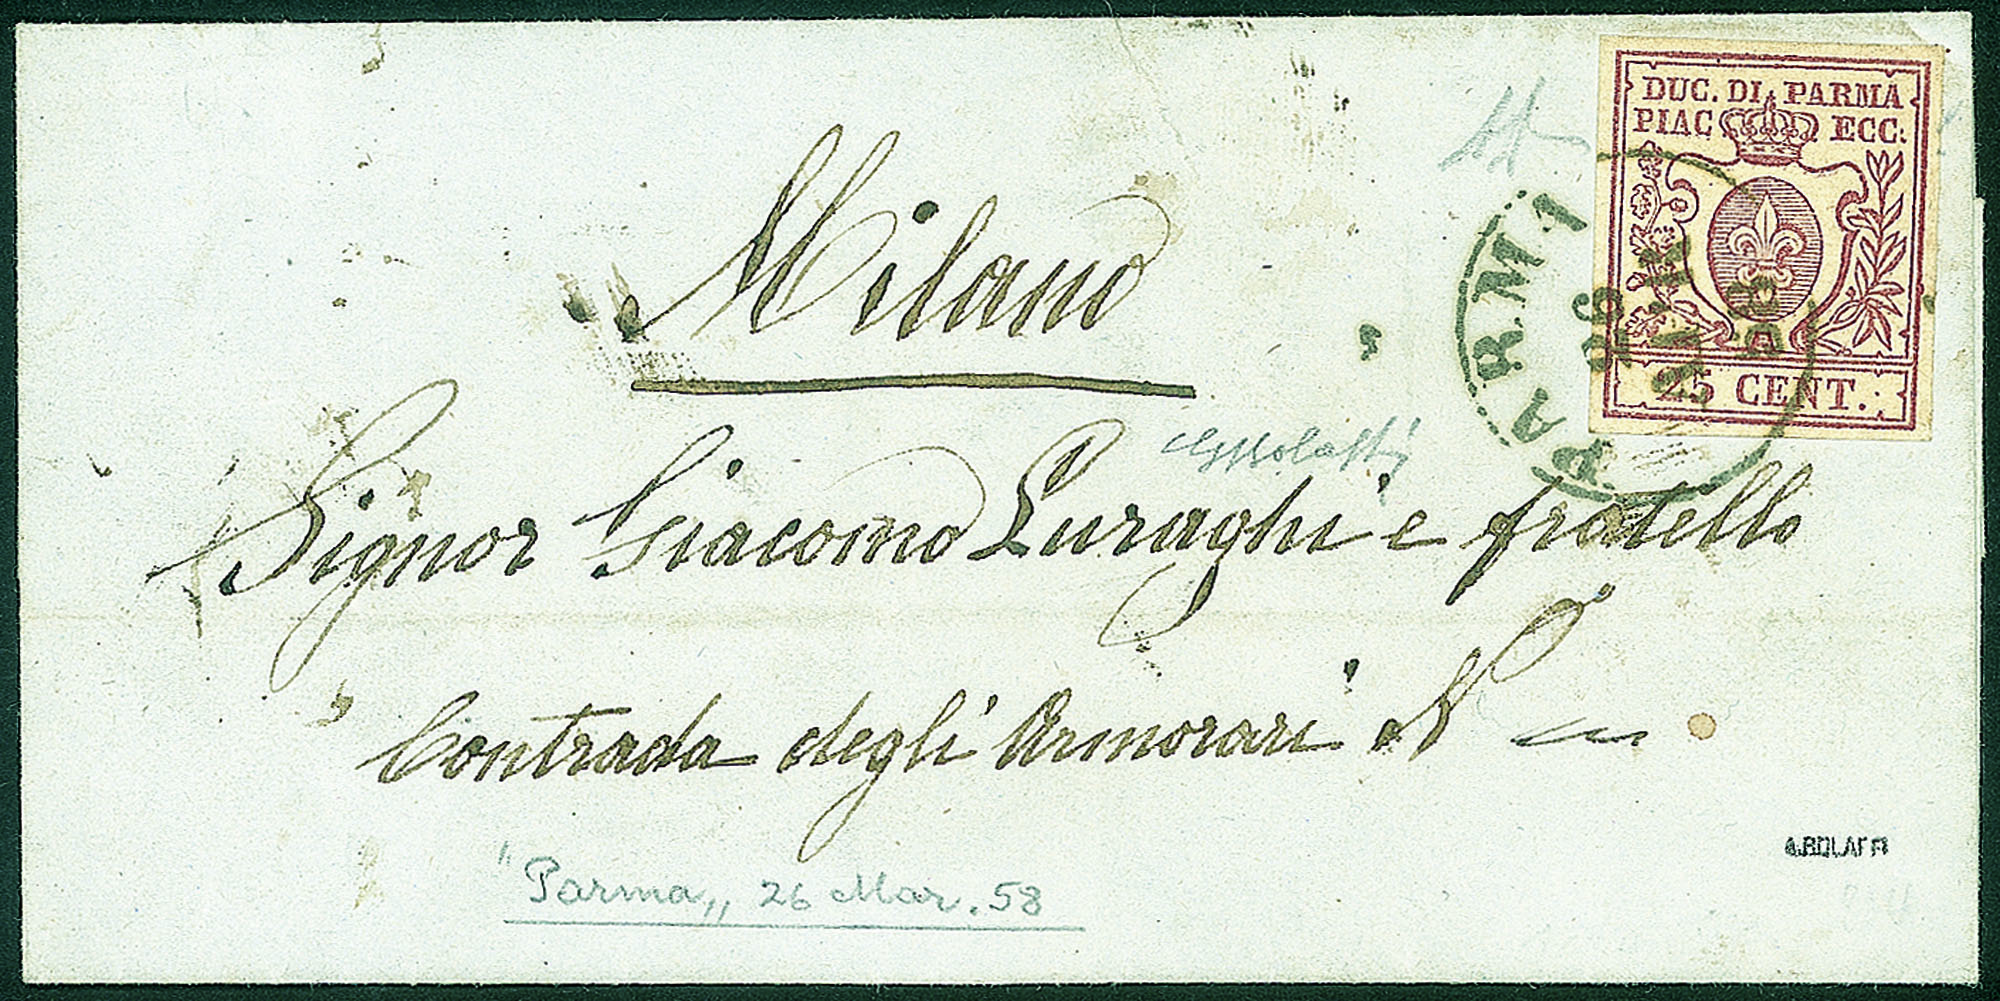 DUC. DI PARMA
PIAC ECC:
25 CENT.
PARMA
26
MAR
58
Milano
Signor Giacomo Luraghi e fratello
Contrada degli Armorari N
"Parma„ 26 Mar. 58
A.BOLAFFI